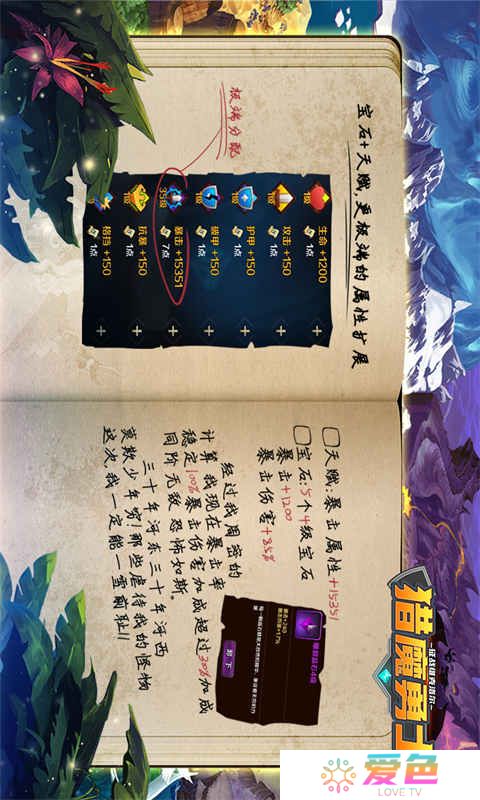 宝石+天赋,更极端的属性扩展
极端分配
生命 +1200
1点
攻击 +150
1点
护甲 +150
1点
破甲 +150
1点
35级
暴击 +15351
7点
抗暴 +150
1点
格挡 +150
1点
天赋:暴击属性+15351
宝石:5个4级宝石
暴击+1200
暴击伤害+85%
经过我周密的
计算,我现在暴击率
稳定100%暴击伤害加成超过30%加成
同阶无敌,恐怖如斯
三十年河东三十年河西
莫欺少年穷!那些虐待我的怪物
这次,我一定能一雪前耻!!
爆裂晶石4级
暴击+240
暴击伤害+17%
卸下
猎魔勇士
爱色
LOVE.TV